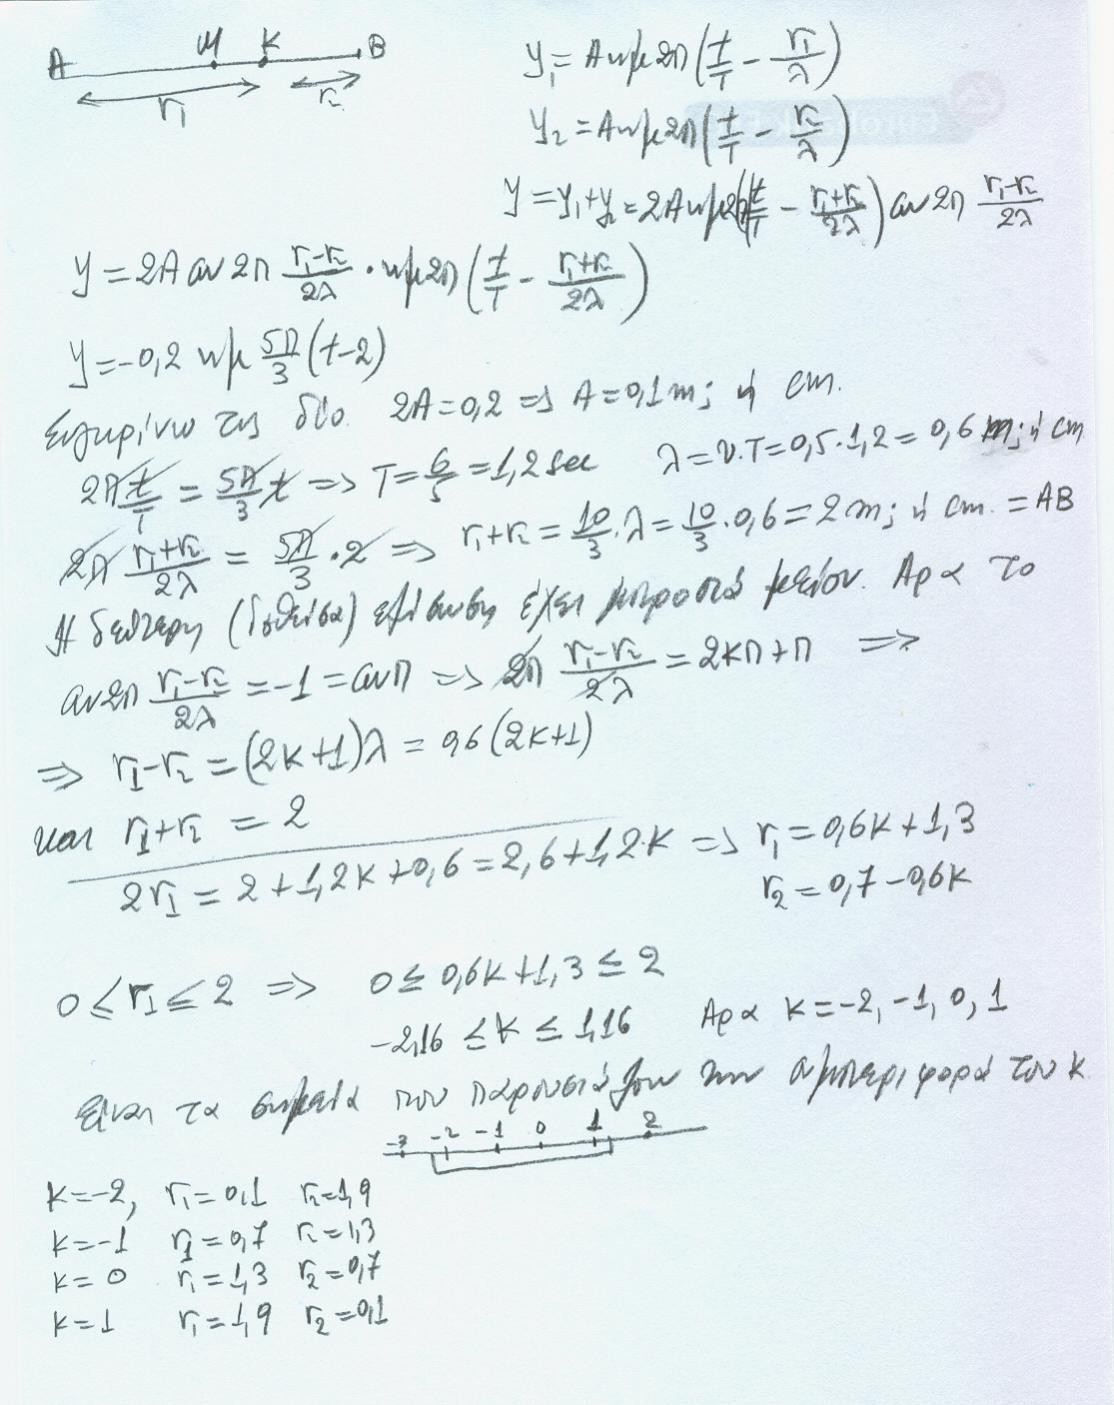 A M K B
r₁ r₂
y₁ = Aημ2π(t/T - r₁/λ)
y₂ = Aημ2π(t/T - r₂/λ)
y = y₁+y₂ = 2Aημ2π(t/T - (r₁+r₂)/2λ) συν2π (r₁-r₂)/2λ
y = 2A συν2π (r₁-r₂)/2λ · ημ2π(t/T - (r₁+r₂)/2λ)
y = -0,2 ημ 5π/3 (t-2)
Συγκρίνω τις δύο. 2A = 0,2 => A = 0,1 m; ή cm.
2π t/T = 5π/3 t => T = 6/5 = 1,2 sec λ = υ.T = 0,5·1,2 = 0,6 m; ή cm
2π (r₁+r₂)/2λ = 5π/3 · 2 => r₁+r₂ = 10/3 · λ = 10/3 · 0,6 = 2 m; ή cm. = AB
Η δεύτερη (δοθείσα) εξίσωση έχει μπροστά μείον. Αρα το
συν2π (r₁-r₂)/2λ = -1 = συνπ => 2π (r₁-r₂)/2λ = 2κπ+π =>
=> r₁-r₂ = (2κ+1)λ = 0,6(2κ+1)
και r₁+r₂ = 2
2r₁ = 2+1,2κ+0,6 = 2,6+1,2·κ => r₁ = 0,6κ+1,3
r₂ = 0,7-0,6κ
0 ≤ r₁ ≤ 2 => 0 ≤ 0,6κ+1,3 ≤ 2
-2,16 ≤ κ ≤ 1,16 Αρα κ = -2, -1, 0, 1
Είναι τα σημεία που παρουσιάζουν την συμπεριφορά του Κ
-3 -2 -1 0 1 2
κ=-2, r₁=0,1 r₂=1,9
κ=-1 r₁=0,7 r₂=1,3
κ=0 r₁=1,3 r₂=0,7
κ=1 r₁=1,9 r₂=0,1